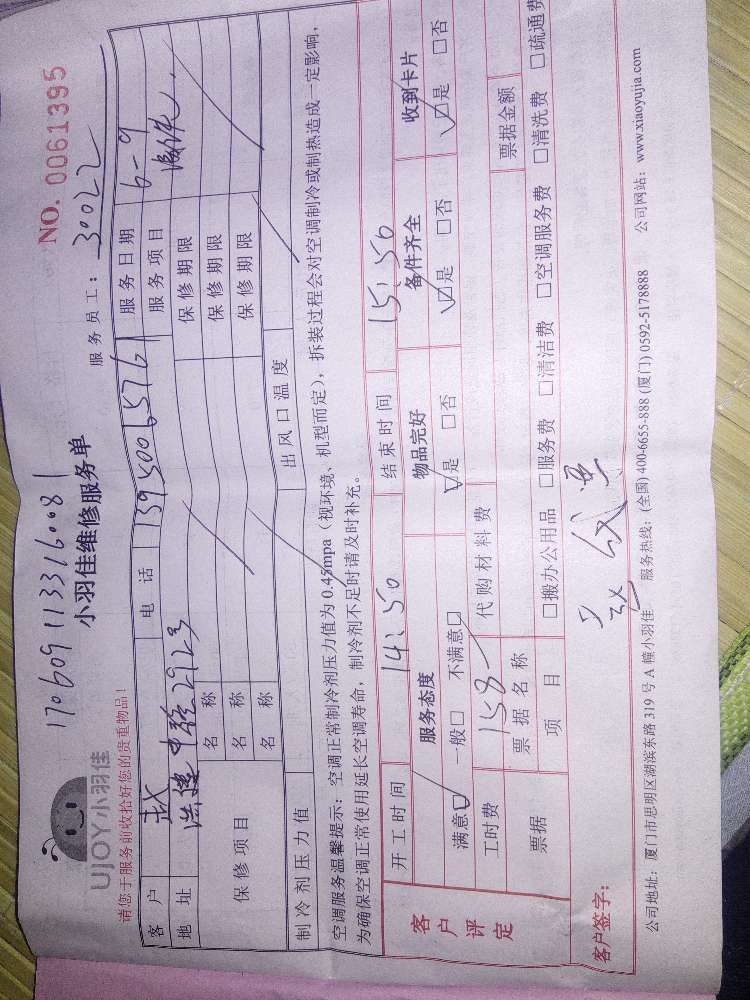 170609113316081
NO. 0061395
UJOY小羽佳
小羽佳维修服务单
服务员工：30022
请您于服务前收拾好您的贵重物品！
客户 赵 电话 13950065761 服务日期 6-9
地址 2923 服务项目
保修项目 名称 保修期限
名称 保修期限
名称 保修期限
制冷剂压力值 出风口温度
空调服务温馨提示：空调正常制冷剂压力值为0.45mpa（视环境、机型而定），拆装过程会对空调制冷或制热造成一定影响，
为确保空调正常使用延长空调寿命，制冷剂不足时请及时补充。
开工时间 14:50 结束时间 15:50
客户评定 服务态度 物品完好 备件齐全 收到卡片
满意☑ 一般□ 不满意□ ☑是 □否 ☑是 □否 ☑是 □否
工时费 158 代购材料费
票据 票据名称 票据金额
项目 □搬办公用品 □服务费 □清洁费 □空调服务费 □清洗费 □疏通费
客户签字：
公司地址：厦门市思明区湖滨东路319号A幢小羽佳 服务热线：(全国) 400-6655-888 (厦门) 0592-5178888 公司网站：www.xiaoyujia.com